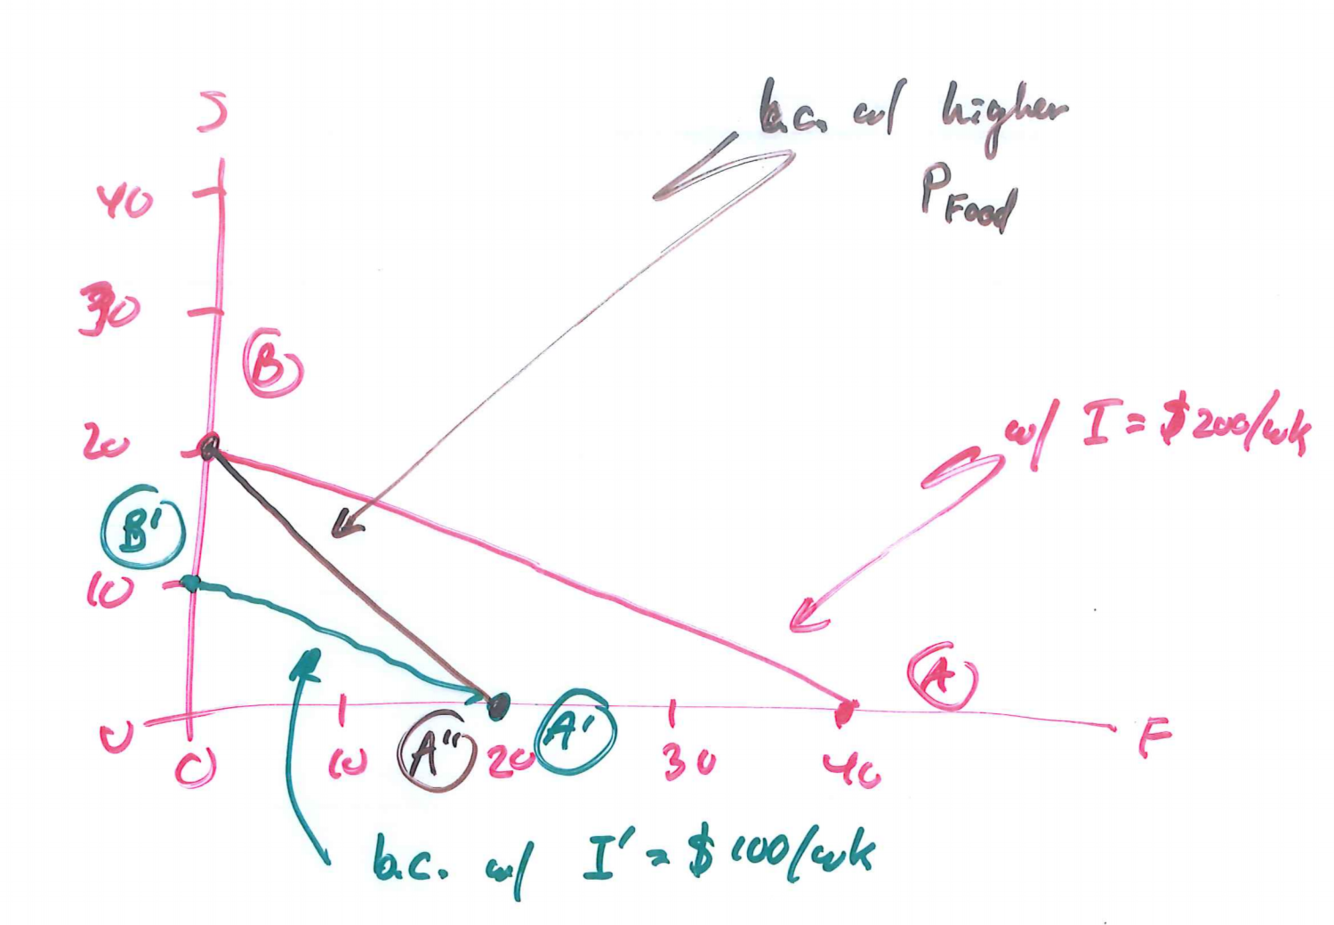 S
b.c. w/ higher
P Food
40
30
B
20
w/ I = $200/wk
B'
10
A
0
A"
A'
F
0
10
20
30
40
b.c. w/ I' = $100/wk